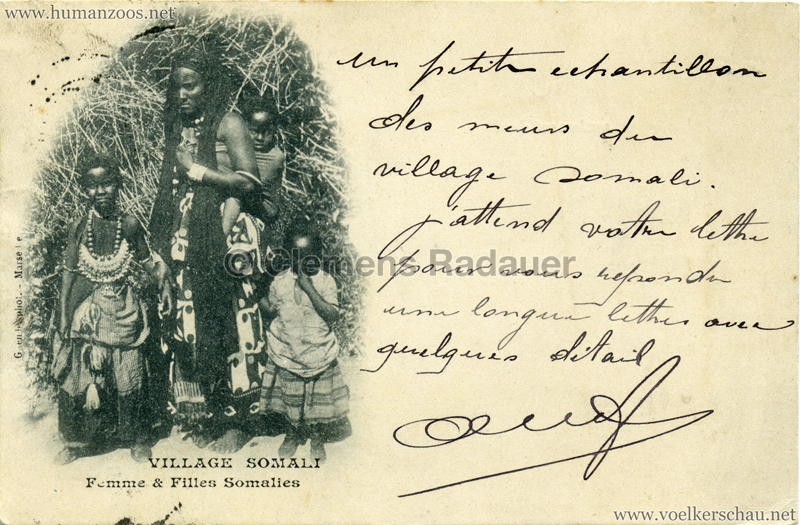 www.humanzoos.net
un petit echantillon
des meurs du
village somali.
j'attend votre lettre
pour vous repondre
une longue lettre avec
quelques détail
© Clemens Radauer
Marseille
VILLAGE SOMALI
Femme & Filles Somalies
www.voelkerschau.net